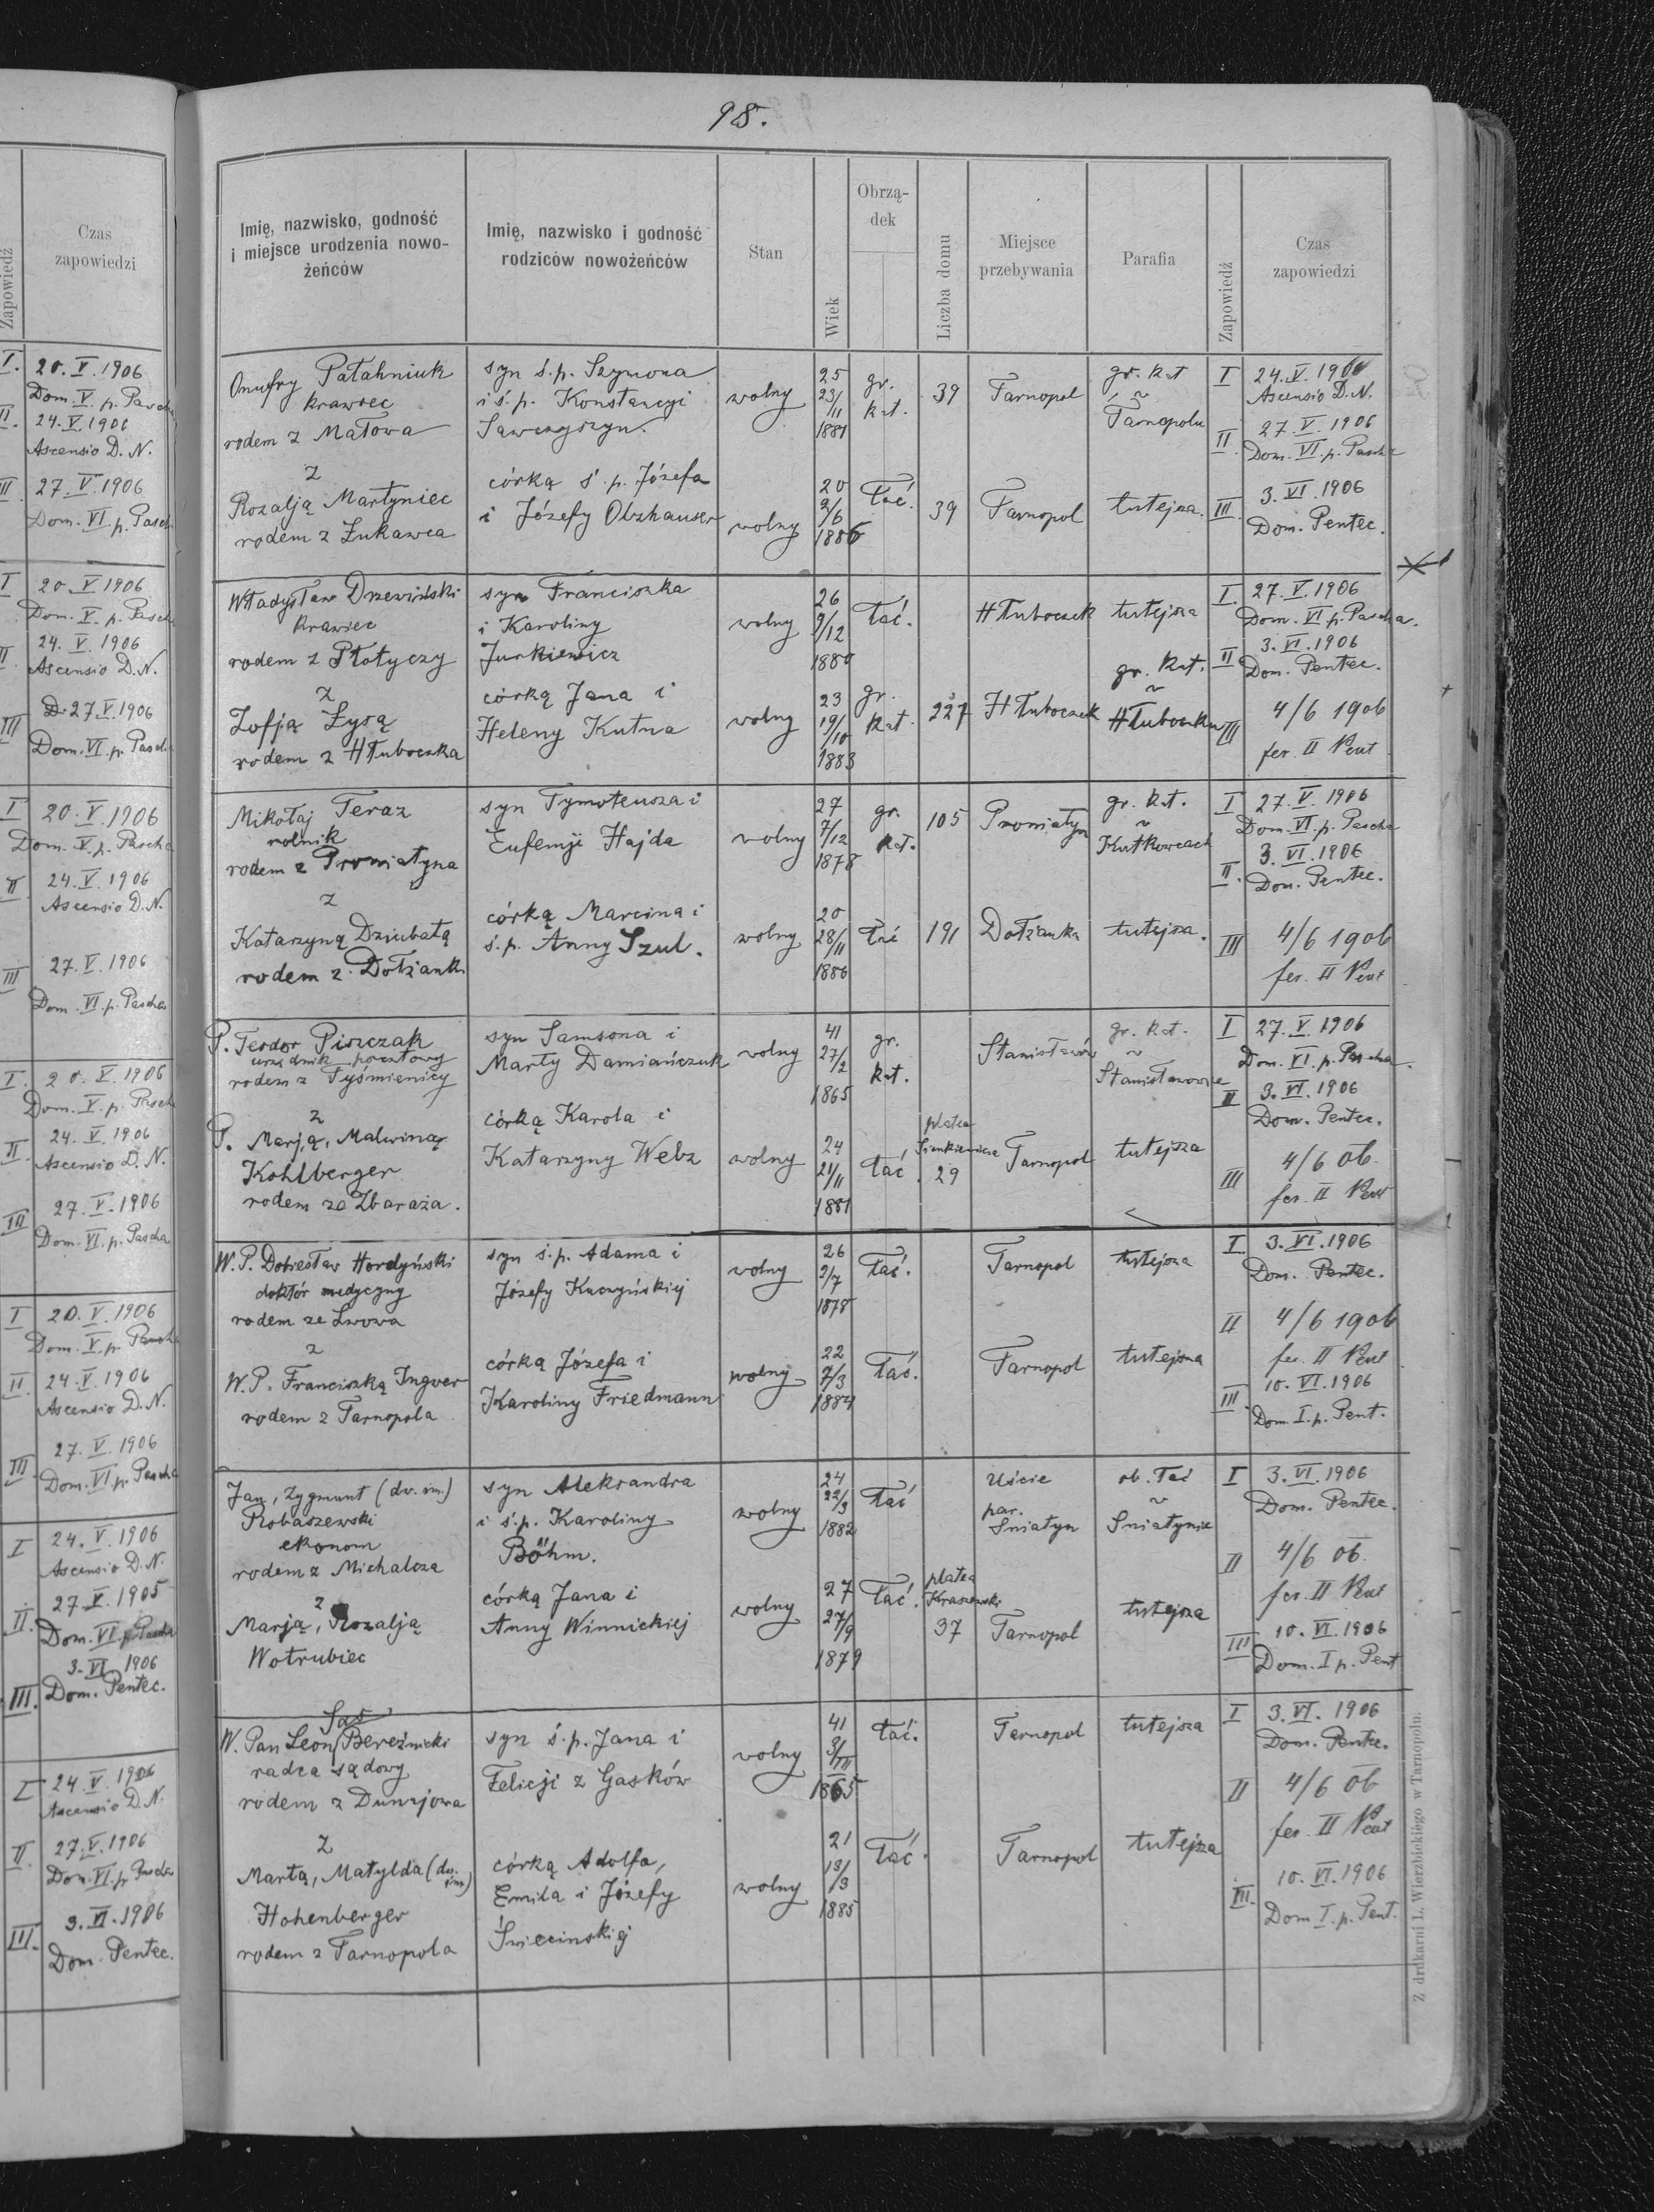 Zapowiedź
Czas
zapowiedzi
I. 20. V. 1906
Dom. V. p. Pascha
II. 24. V. 1906
Ascensio D. N.
III 27. V. 1906
Dom. VI. p. Pasch
I 20. V 1906
Dom. V. p. Pasch
II 24. V. 1906
Ascensio D. N.
III D. 27. V. 1906
Dom. VI. p. Pasch
I 20. V. 1906
Dom. V. p. Pascha
II 24. V. 1906
Ascensio D. N.
III 27. V. 1906
Dom. VI. p. Pascha
I. 20. V. 1906
Dom. V. p. Pasch
II. 24. V. 1906
Ascensio D. N.
III 27. V. 1906
Dom. VI. p. Pascha
I 20. V. 1906
Dom. V. p. Pascha
II. 24. V. 1906
Ascensio D. N.
III. 27. V. 1906
Dom. VI. p. Pascha
I 24. V. 1906
Ascensio D. N.
II. 27. V. 1905
Dom. VI p. Pascha
3. VI. 1906
III. Dom. Pentec.
I 24. V. 1906
Ascensio D. N.
II. 27. V. 1906
Dom. VI. p. Pascha
III. 3. VI. 1906
Dom. Pentec.
98.
Imię, nazwisko, godność
i miejsce urodzenia nowo-
żeńców
Imię, nazwisko i godność
rodziców nowożeńców
Stan
Wiek
Obrzą-
dek
Liczba domu
Miejsce
przebywania
Parafia
Zapowiedź
Czas
zapowiedzi
Onufry Pałahniuk
krawiec
rodem z Małowa
syn ś.p. Szymona
i ś.p. Konstancyi
Sawczyszyn.
wolny
25
23/11
1881
gr.
kat.
39
Tarnopol
gr. kat
w
Tarnopolu
I 24. V. 1906
Ascensio D. N.
II 27. V. 1906
Dom. VI. p. Pascha
z
Rozalją Martyniec
rodem z Łukawca
córką ś. p. Józefa
i Józefy Obzhauser
wolny
20
2/6
1886
łać.
39
Tarnopol
tutejsza.
III. 3. VI. 1906
Dom. Pentec.
Władysław Drzewiński
krawiec
rodem z Płotyczy
syn Franciszka
i Karoliny
Jurkiewicz
wolny
26
9/12
1880
łać.
Hłuboczek
tutejsza
I. 27. V. 1906
Dom. VI. p. Pascha.
II 3. VI. 1906
Dom. Pentec.
z
Zofją Łysą
rodem z Hłuboczka
córką Jana i
Heleny Kutna
wolny
23
19/10
1883
gr.
kat.
227
Hłuboczek
gr. kat.
w
Hłuboczku
III 4/6 1906
fer. II Pent
Mikołaj Teraz
rolnik
rodem z Proniatyna
syn Tymoteusza i
Eufemji Hajda
wolny
27
7/12
1878
gr.
kat.
105
Proniatyn
gr. kat.
w
Kutkowcach
I 27. V. 1906
Dom. VI. p. Pascha
II. 3. VI. 1906
Dom. Pentec.
z
Katarzyną Dziubatą
rodem z Dołżanki
córką Marcina i
ś. p. Anny Szul.
wolny
20
28/11
1886
łać
191
Dołżanka
tutejsza.
III 4/6 1906
fer. II Pent
P. Teodor Piszczak
urzędnik pocztowy
rodem z Tyśmienicy
syn Samsona i
Marty Damiańczuk
wolny
41
27/2
1865
gr.
kat.
Stanisławów
gr. kat.
w
Stanisławowie
I 27. V. 1906
Dom. VI. p. Pascha.
II 3. VI. 1906
Dom. Pentec.
z
P. Marją, Malwiną
Kohlberger
rodem ze Zbaraża.
córką Karola i
Katarzyny Webz
wolny
24
21/11
1881
łać.
platea
Sienkiewicza
29
Tarnopol
tutejsza
III 4/6 06.
fer. II Pent
W. P. Dobiesław Hordyński
doktór medycyny
rodem ze Lwowa
syn ś.p. Adama i
Józefy Kuczyńskiej
wolny
26
2/7
1878
łać.
Tarnopol
tutejsza
I 3. VI. 1906
Dom. Pentec.
II 4/6 1906
fer. II Pent
z
W. P. Franciszką Ingver
rodem z Tarnopola
córką Józefa i
Karoliny Friedmann
wolny
22
7/3
1884
łać.
Tarnopol
tutejsza
III. 10. VI. 1906
Dom. I. p. Pent.
Jan, Zygmunt (dw. im.)
Robaszewski
ekonom
rodem z Michalcza
syn Aleksandra
i ś.p. Karoliny
Böhm.
wolny
24
22/3
1882
łać
Uście
par.
Śniatyn
ob. łać
w
Śniatynie
I 3. VI. 1906
Dom. Pentec.
II 4/6 06.
fer. II Pent
z
Marją, Rozalją
Wotrubiec
córką Jana i
Anny Winnickiej
wolny
27
27/9
1879
łać.
platea
Kraszewski
37
Tarnopol
tutejsza
III 10. VI. 1906
Dom. I p. Pent
Sas
W. Pan Leon Bereźnicki
radca sądowy
rodem z Dunajowa
syn ś.p. Jana i
Felicji z Gasków
wolny
41
3/III
1865
łać.
Tarnopol
tutejsza
I 3. VI. 1906
Dom. Pentec.
II 4/6 06
fer. II Pent
z
Martą, Matylda (dw. im)
Hohenberger
rodem z Tarnopola
córką Adolfa,
Emila i Józefy
Świecinskiej
wolny
21
13/3
1885
łać.
Tarnopol
tutejsza
III. 10. VI. 1906
Dom I. p. Pent.
Z drukarni L. Wierzbickiego w Tarnopolu.